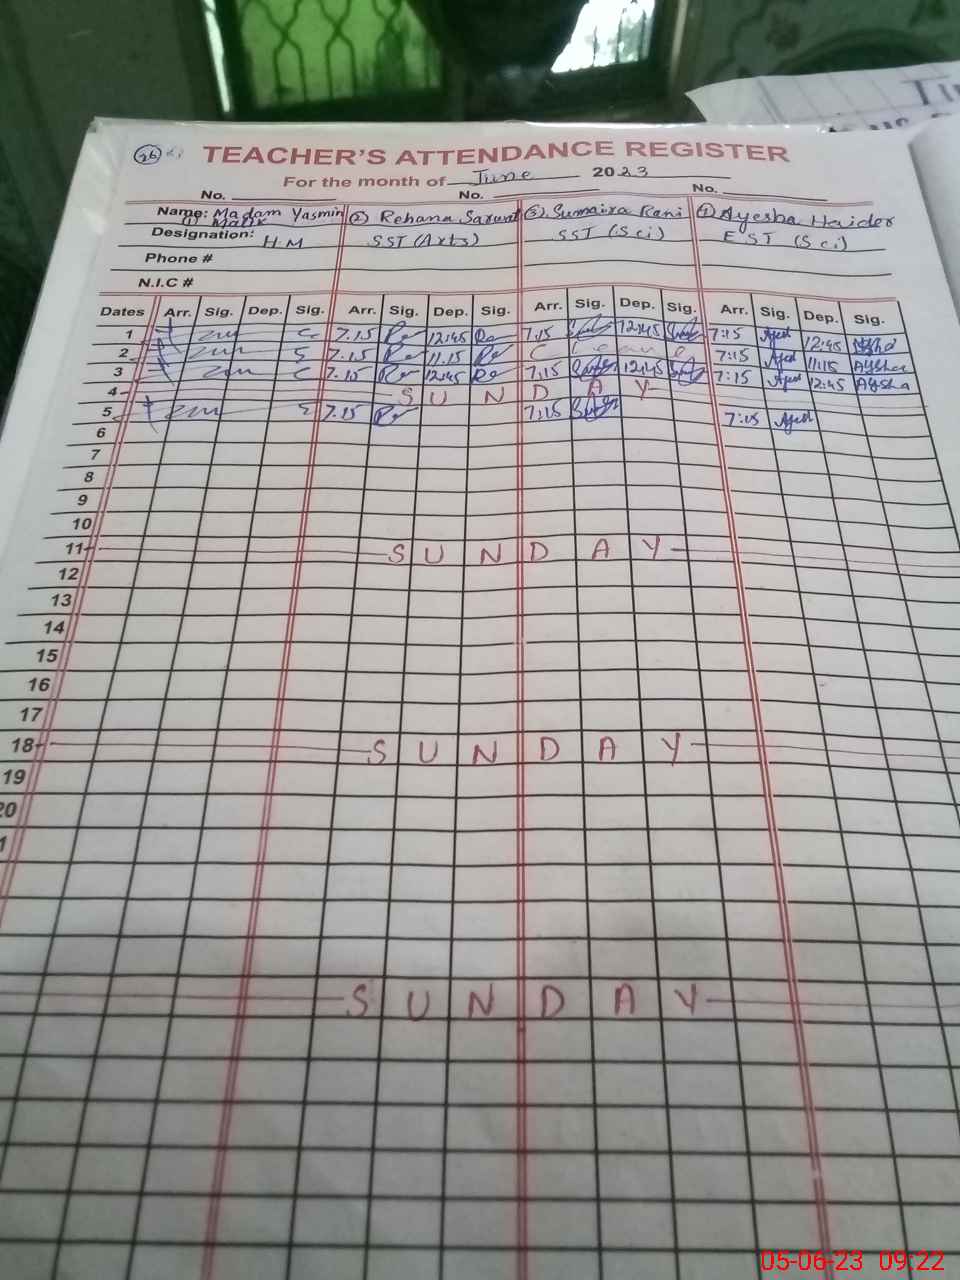 26
TEACHER'S ATTENDANCE REGISTER
For the month of June 2023
No. No. No.
Name: Madam Yasmin (2) Rehana Sarwat (3) Sumaira Rani (4) Ayesha Haider
(1) Malik
Designation: H.M SST (Arts) SST (Sci) EST (Sci)
Phone #
N.I.C #
Dates Arr. Sig. Dep. Sig. Arr. Sig. Dep. Sig. Arr. Sig. Dep. Sig. Arr. Sig. Dep. Sig.
1 7.15 12:45 7:15 12:45 7:15 12:45
2 7.15 11.15 C Leave 7:15 11:15 Aysha
3 7.15 12:45 7:15 12:45 7:15 12:45 Aysha
4 SUNDAY
5 7.15 7:15 7:15
6
7
8
9
10
11 SUNDAY
12
13
14
15
16
17
18 SUNDAY
19
20
1
SUNDAY
05-06-23 09:22